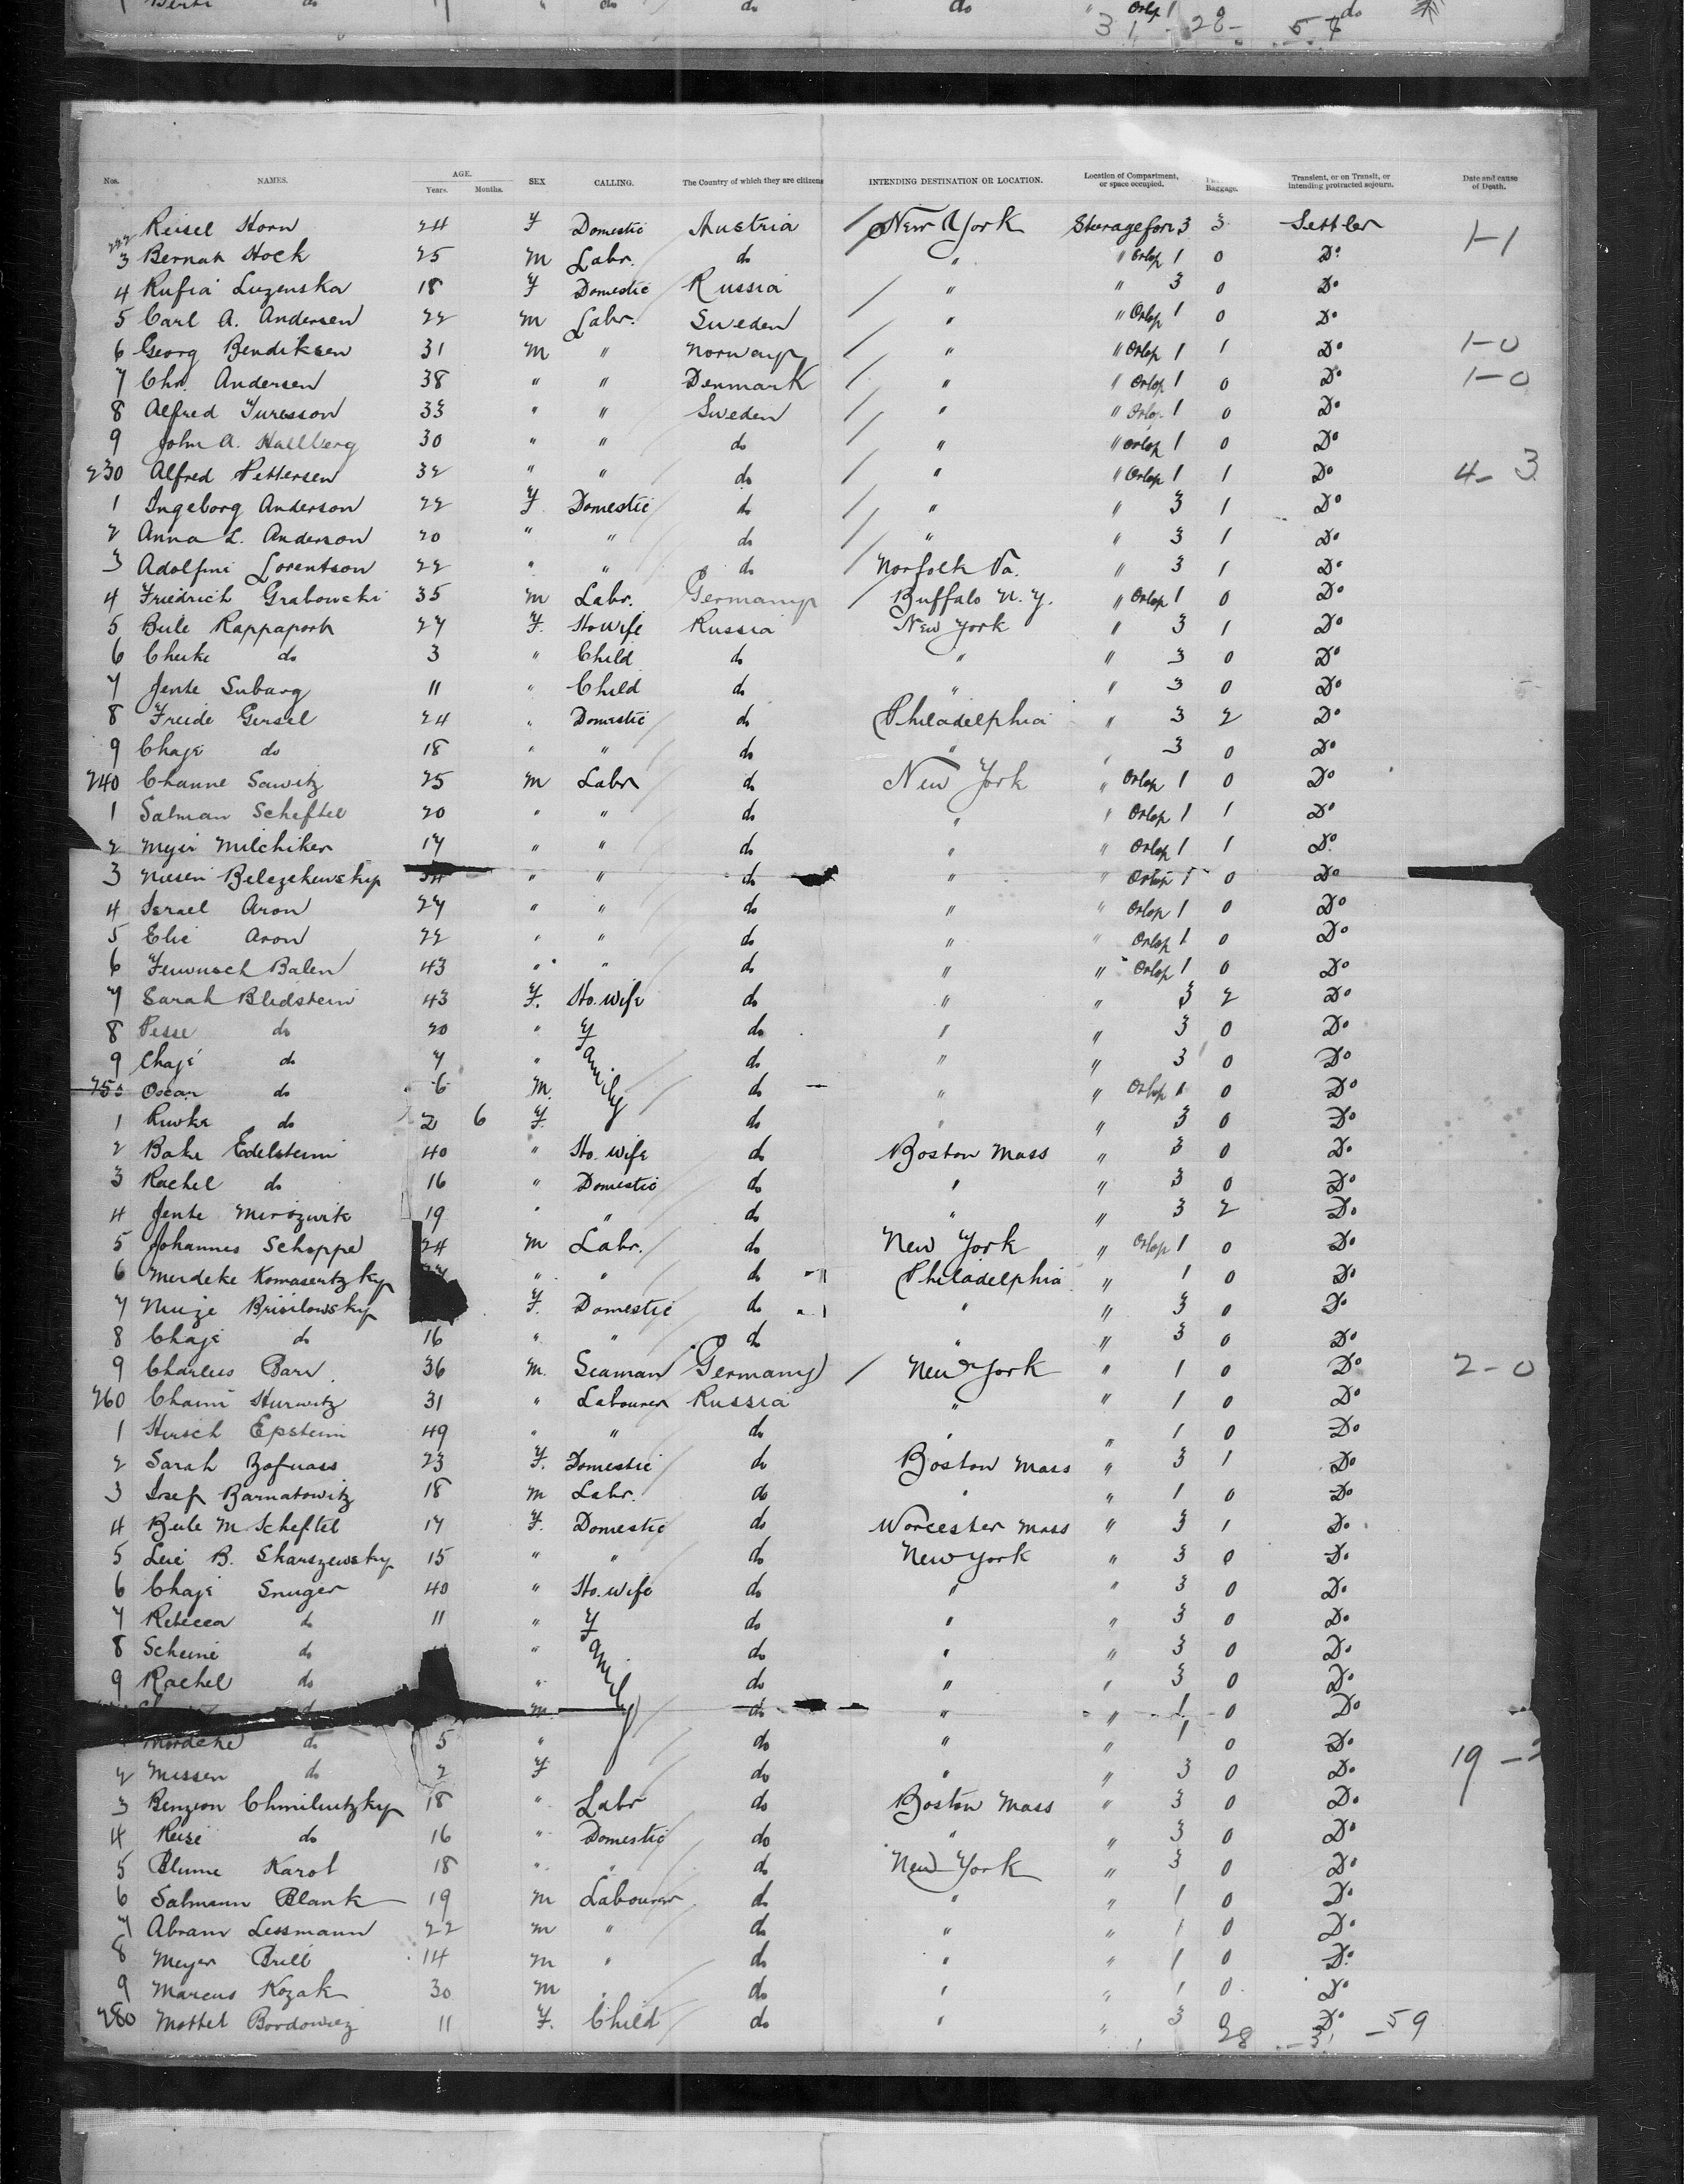 do do do do " Orlop 1 do
31 - 28 - 54
Nos. NAMES. AGE. Years. Months. SEX CALLING. The Country of which they are citizens INTENDING DESTINATION OR LOCATION. Location of Compartment, or space occupied. Baggage. Transient, or on Transit, or intending protracted sojourn. Date and cause of Death.
222 Reisel Horn 24 F Domestic Austria / New York 3 3 Settler 1-1
3 Bernah Hock 25 M Labr. do " " Orlop 1 0 Do
4 Rufia Luzenska 18 F Domestic Russia / " " 3 0 Do
5 Carl A. Andersen 22 M Labr. Sweden / " " Orlop 1 0 Do
6 Georg Bendiksen 31 M " Norway / " " Orlop 1 1 Do 1-0
7 Chr. Andersen 38 " " Denmark / " " Orlop 1 0 Do 1-0
8 Alfred 33 " " Sweden / " " Orlop 1 0 Do
9 John A. Hallberg 30 " " do / " " Orlop 1 0 Do
230 Alfred Pettersen 32 " " do / " " Orlop 1 1 Do 4-3
1 Ingeborg Anderson 22 F Domestic do / " " 3 1 Do
2 Anna L. Anderson 20 " " do / " " 3 1 Do
3 Adolfine Lorentson 22 " " do Norfolk Va. " 3 1 Do
4 Friedrich Grabowski 35 M Labr. Germany / Buffalo N.Y. " Orlop 1 0 Do
5 Bule Rappaport 27 F. Ho wife Russia New York " 3 1 Do
6 Cheike do 3 " Child do " " 3 0 Do
7 Jente Subarg 11 " Child do " " 3 0 Do
8 Freide Gersel 24 " Domestic do Philadelphia " 3 2 Do
9 Chaje do 18 " " do " " 3 0 Do
240 Channe Sawitz 25 M Labr do New York " Orlop 1 0 Do
1 Salman Scheftel 20 " " do " " Orlop 1 1 Do
2 Myer Milchiker 17 " " do " " Orlop 1 1 Do
3 Niesen Belezekewsky 34 " " do " " Orlop 1 0 Do
4 Israel Aron 27 " " do " " Orlop 1 0 Do
5 Elie Aron 22 " " do " " Orlop 1 0 Do
6 Balen 43 " " do " " Orlop 1 0 Do
7 Sarah Bledstein 43 F. Ho. wife do " " 3 2 Do
8 Pesse do 20 " Family do " " 3 0 Do
9 Chaje do 7 " do " " 3 0 Do
250 Oscar do 6 M. do " " Orlop 1 0 Do
1 Riwka do 2 6 F. do " " 3 0 Do
2 Bake Edelstein 40 " Ho. wife do Boston Mass " 3 0 Do
3 Rachel do 16 " Domestic do " " 3 0 Do
4 Jente Mirozwik 19 " " do " " 3 2 Do
5 Johannes Schoppe 24 M Labr. do New York " Orlop 1 0 Do
6 Merdeke Komasertzky " " do Philadelphia " 1 0 Do
7 Nuize Brisilowsky F. Domestic do " " 3 0 Do
8 Chaje do 16 " " do " " 3 0 Do
9 Charlees Barr 36 M. Seaman Germany / New York " 1 0 Do 2-0
260 Chaim Hurwitz 31 " Labourer Russia " " 1 0 Do
1 Hirsch Epstein 49 " " do " " 1 0 Do
2 Sarah Zofnass 23 F. Domestic do Boston Mass " 3 1 Do
3 Josef Barnatowitz 18 M Labr. do " " 1 0 Do
4 Beile M. Scheftel 17 F. Domestic do Worcester Mass " 3 1 Do
5 Leie B. Skarszewsky 15 " " do New York " 3 0 Do
6 Chaje Snuger 40 " Ho. wife do " " 3 0 Do
7 Rebecca do 11 " Family do " " 3 0 Do
8 Scheine do " do " " 3 0 Do
9 Rachel do " do " " 3 0 Do
do M. do " " 1 0 Do
Mordche do 5 " do " " 1 0 Do 19 -
2 Missen do 2 F do " " 3 0 Do
3 Benzion Chmilnitzky 18 " Labr do Boston Mass " 3 0 Do
4 Reise do 16 " Domestic do " " 3 0 Do
5 Blume Karol 18 " " do New York " 3 0 Do
6 Salmann Blank 19 M Labourer do " " 1 0 Do
7 Abram Lessmann 22 M " do " " 1 0 Do
8 Meyer Brill 14 M " do " " 1 0 Do
9 Marcus Kozak 30 M " do " " 1 0 Do
280 Mottel Bordowicz 11 F. Child do " " 3 0 Do
28 - 31 - 59